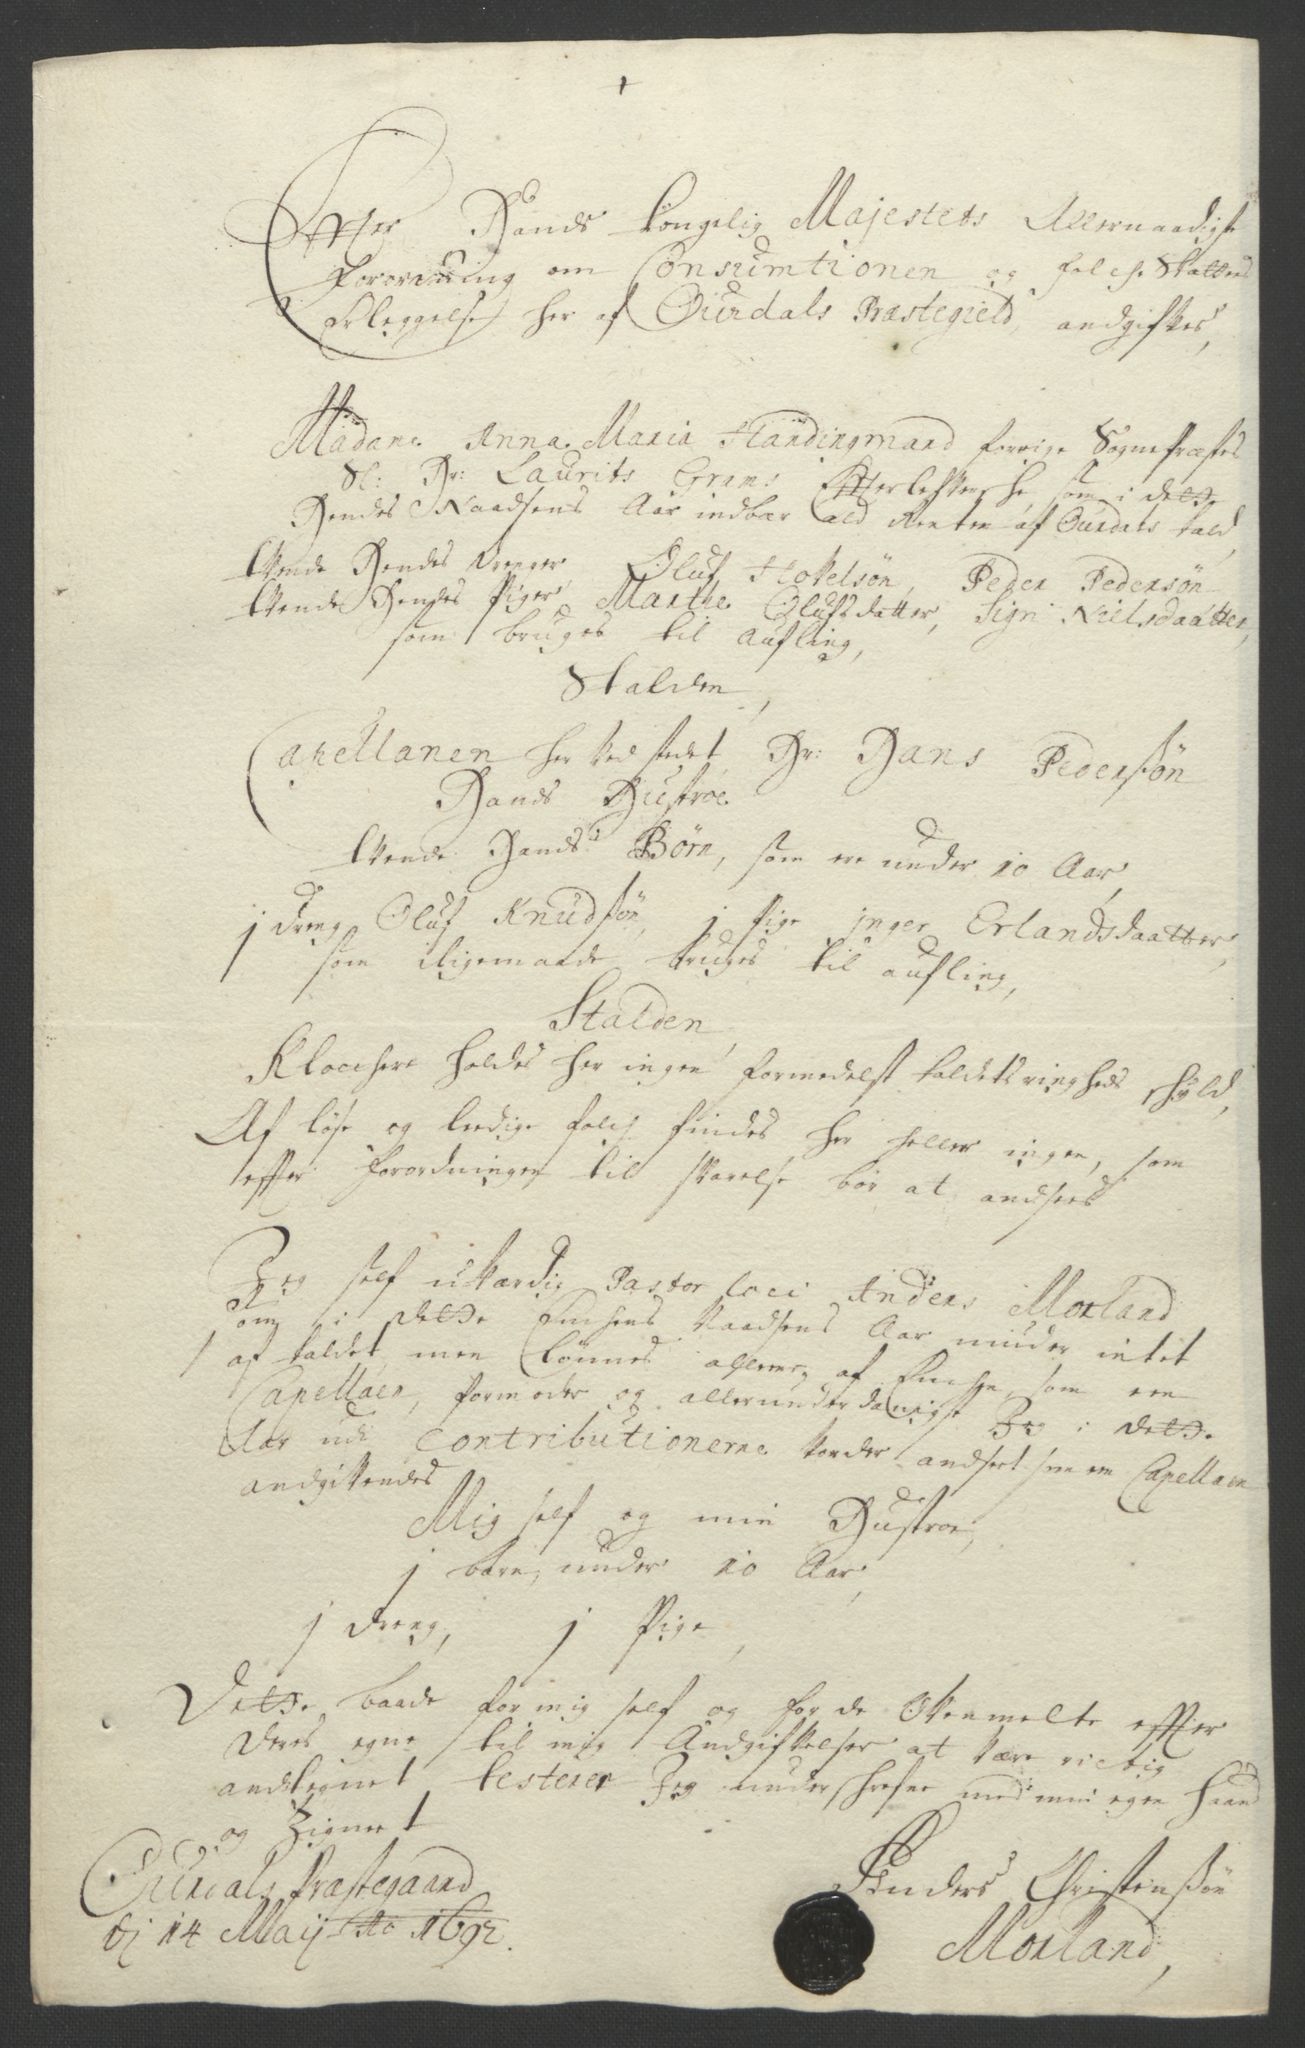 Effter Hands Kongelig Majestets Allernaadigste
Forordning om Consumtionen og folche Skattens
Erleggelse her af Ourdals Præstegield, andgifves,
Madame Anna Maria Handingmand forrige Sognepræstes
Sl: Hr: Laurits Grams Effterlefversche som i dette
Hendes Naadsens Aar indbær ald Renten af Ourdals kald,
tvende Hendes Drenger Oluf Hovelsøn, Peder Pedersøn
tvende Hendes Piger Marthe Olufsdatter, Sigri Nielsdaatter,
som bruges til aufling,
Stalden,
Capellanen her ved stedet Hr: Hans Pedersøn
Hands Hustroe
tvende Hands Børn, som ere under 10 Aar,
j dreng Oluf Knudsøn, j pige Inger Erlandsdaatter,
som iligemaade bruges til aufling,
Stalden,
Klochere holdes her ingen formedelst kaldets ringheds skyld,
Af løse og ledige folch findes her heller ingen, som
effter Forordningen til skarelse bør at andsees
Jeg self uværdig Pastor loci Anders Morland
som i dette Enchens Naadsens Aar niuder intet
af kaldet, men lønnes alleene af Enchen som een
Capellaen, formoder og allerunderdanigst Jeg i dette
Aar udi Contributionerne vorder andseet som en Capellaen
andgifvendes
Mig self og min Hustroe,
j barn, under 10 Aar,
j dreng, j Pige,
Dette baade for mig self og for de Ofvenmelte effter
deres egne til mig Andgifvelser at være rictig
andtegnet testerer Jeg under skrefne med min egen Haand
og Zignet
Ourdals Præstegaard
dj 14 Maij Ao 1692.
Anders Christensøn
Morland,